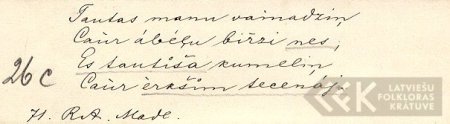 Tautas manu vainadziņ
Caur ābeļu birzi nes;
26 c
Es tautiša kumeliņ
Caur ērkšim tecenāj.
71. R. A. Madl.
LATVIEŠU
FOLKLORAS
KRĀTUVE